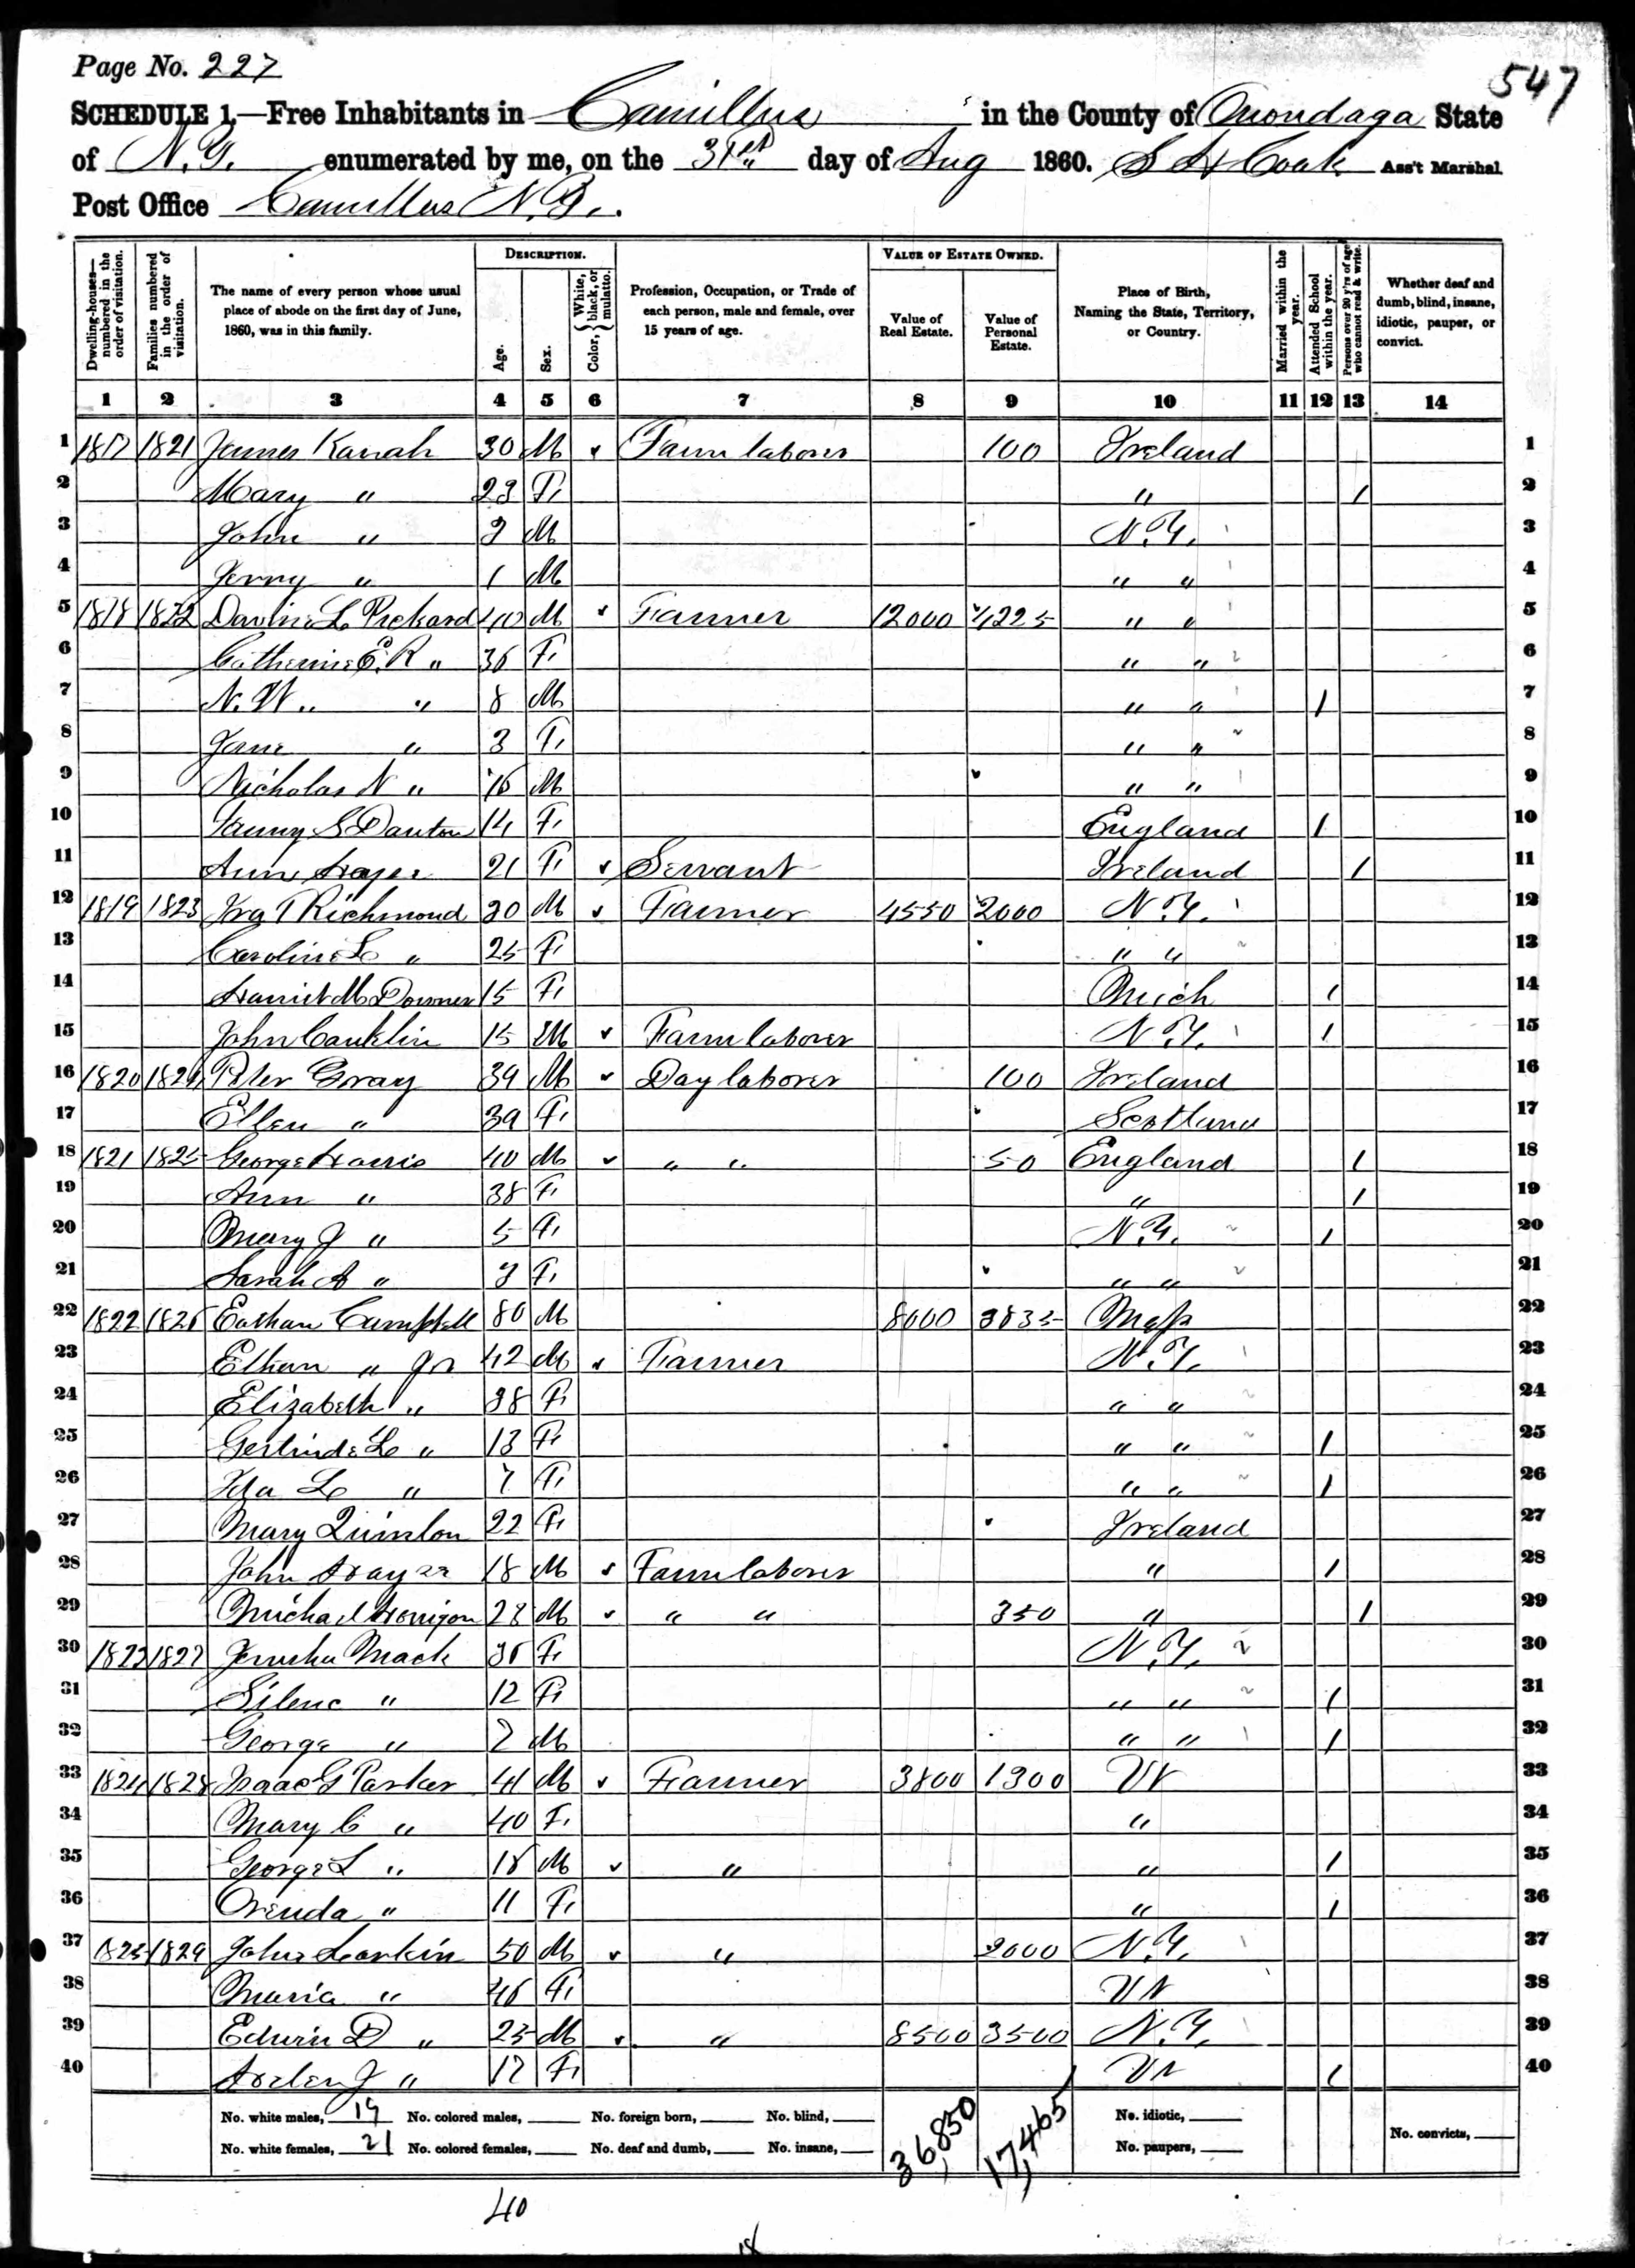 Page No. 227
547
SCHEDULE 1.—Free Inhabitants in Camillus in the County of Onondaga State
of N.Y. enumerated by me, on the 31st day of Aug 1860. S H Cook Ass't Marshal
Post Office Camillus N.Y.
Dwelling-houses— numbered in the order of visitation. Families numbered in the order of visitation. The name of every person whose usual place of abode on the first day of June, 1860, was in this family. DESCRIPTION. Age. Sex. Color, { White, black, or mulatto. Profession, Occupation, or Trade of each person, male and female, over 15 years of age. VALUE OF ESTATE OWNED. Value of Real Estate. Value of Personal Estate. Place of Birth, Naming the State, Territory, or Country. Married within the year. Attended School within the year. Persons over 20 y'rs of age who cannot read & write. Whether deaf and dumb, blind, insane, idiotic, pauper, or convict.
1 2 3 4 5 6 7 8 9 10 11 12 13 14
1 1817 1821 James 30 M Farm laborer 100 Ireland 1
2 Mary " 23 F " / 2
3 John " M N.Y. 3
4 Jerry " 1 M " " 4
5 1818 1822 L Pickard 40 M Farmer 12000 4225 " " 5
6 Catherine E. R " 36 F " " 6
7 N. W. " 8 M " " / 7
8 Jane " 3 F " " 8
9 Nicholas N " 76 M " " 9
10 Fanny S Danton 14 F England / 10
11 Ann 21 F Servant Ireland / 11
12 1819 1823 Ira T Richmond 30 M Farmer 4550 2000 N.Y. 12
13 Caroline L " 25 F " " 13
14 Harriet M Downer 15 F Mich / 14
15 John Conklin 15 M Farm laborer N.Y. / 15
16 1820 1824 Peter Gray 39 M Day laborer 100 Ireland 16
17 Ellen " 39 F Scotland 17
18 1821 1825 George Harris 40 M " " 50 England / 18
19 Ann " 38 F " / 19
20 Mary J " 5 F N.Y. / 20
21 Sarah A " 3 F " " 21
22 1822 1826 Campbell 80 M 8000 3835 Mass 22
23 " Jr 42 M Farmer N.Y. 23
24 Elizabeth " 38 F " " 24
25 Gertrude L " 13 F " " / 25
26 Ida L " 7 F " " / 26
27 Mary Quinlon 22 F Ireland 27
28 John 18 M Farm laborer " / 28
29 Michael 28 M " " 350 " / 29
30 1823 1827 Jerusha Mack 36 F N.Y. 30
31 " 12 F " " / 31
32 George " 7 M " " / 32
33 1824 1828 Isaac G Parker 41 M Farmer 3800 1300 Vt 33
34 Mary C " 40 F " 34
35 George L " M " " / 35
36 Orenda " 11 F " / 36
37 1825 1829 John Larkin 50 M " 2000 N.Y. 37
38 Maria " 46 F Vt 38
39 Edwin D " 23 M " 8500 3500 N.Y. 39
40 Helen J " F Vt / 40
No. white males, 19 No. colored males, No. foreign born, No. blind, 36,850 17,465 No. idiotic, No. convicts,
No. white females, 21 No. colored females, No. deaf and dumb, No. insane, No. paupers,
40